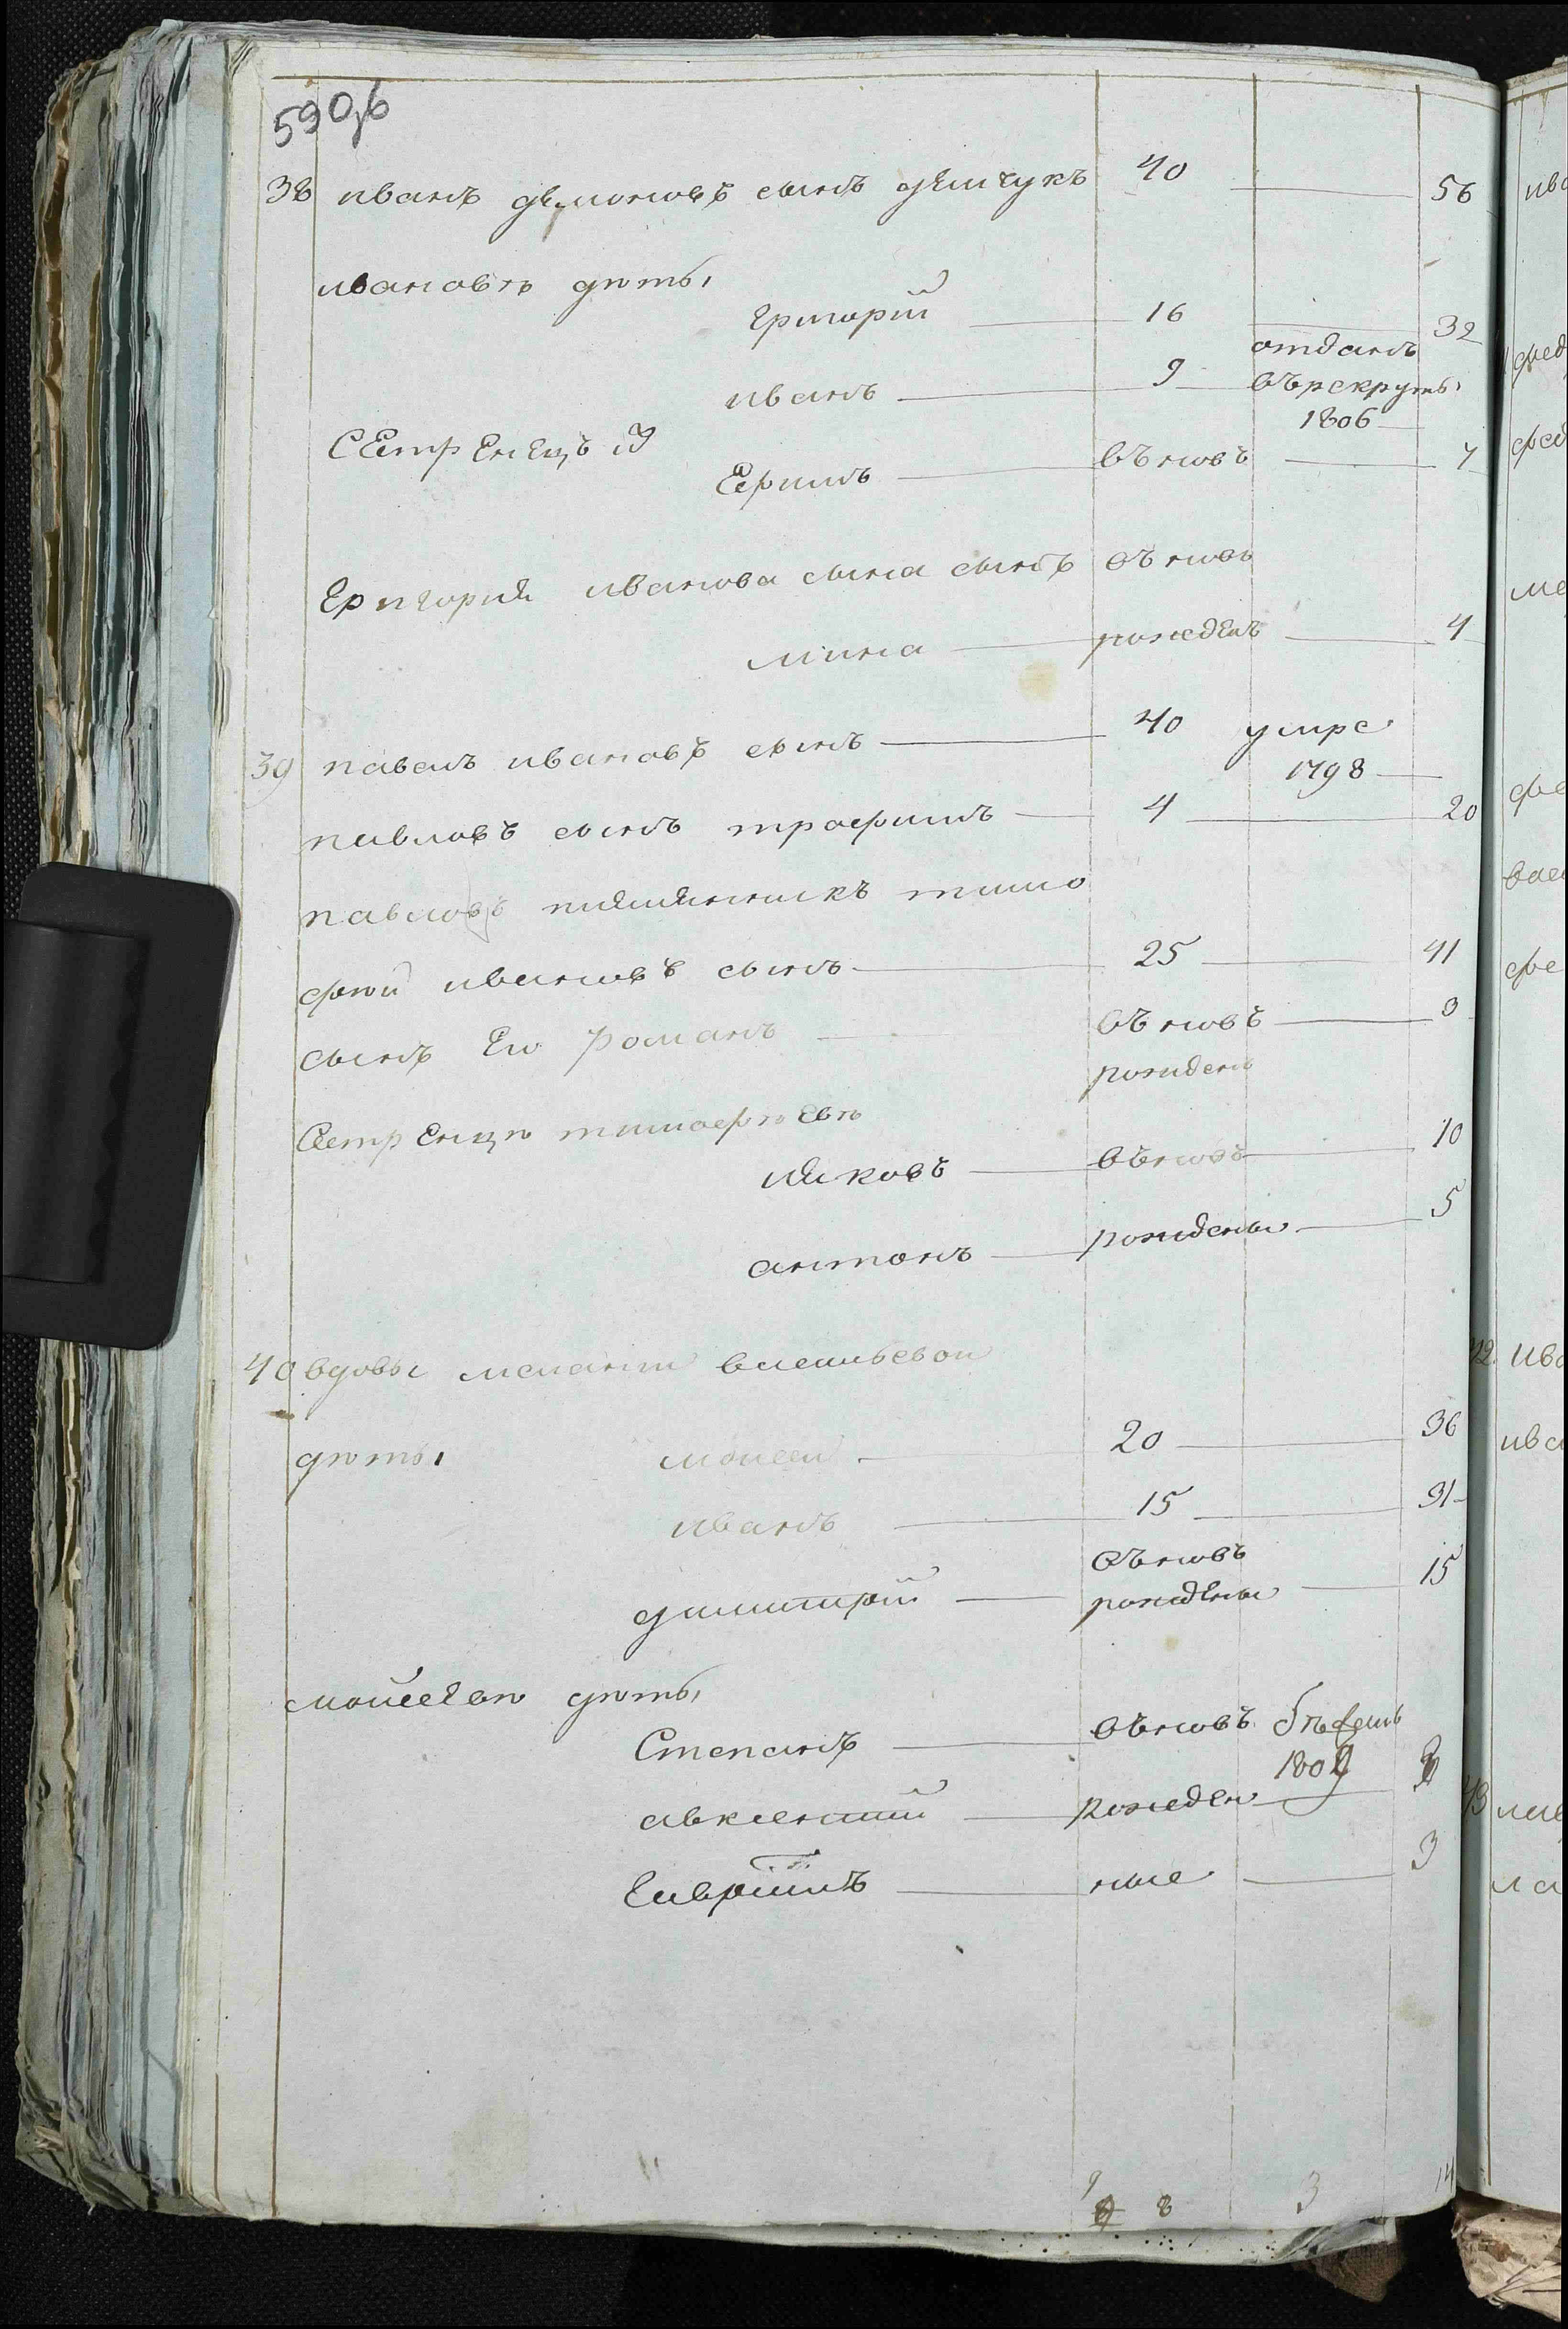 59об
38 иванъ демоновъ сынъ демчукъ 40 56
ивановъ дѣты
григорій 16 32
иванъ 9 отданъ въ рекруты 1806
сестренецъ
Ефимъ въновъ 7
григория иванова сына сынъ въновь
мина рожденъ 4
39 павелъ ивановъ сынъ 40 умре 1798
павловъ сынъ трофимъ 4 20
павловъ пляменникъ тимо
фей ивановъ сынъ 25 41
сынъ Его романъ въновъ рожденъ 9
Сестренцы тимофѣевы
яковъ въновъ 10
антонъ рождены 5
40 вдовы мелании васильевой
дѣты моисей 20 36
иванъ 15 31
димитрій въновъ рождены 15
моисеевы дѣты
Степанъ въновъ бѣжалъ 1809
авксентий рожден
Гавріилъ ные 3
8 3